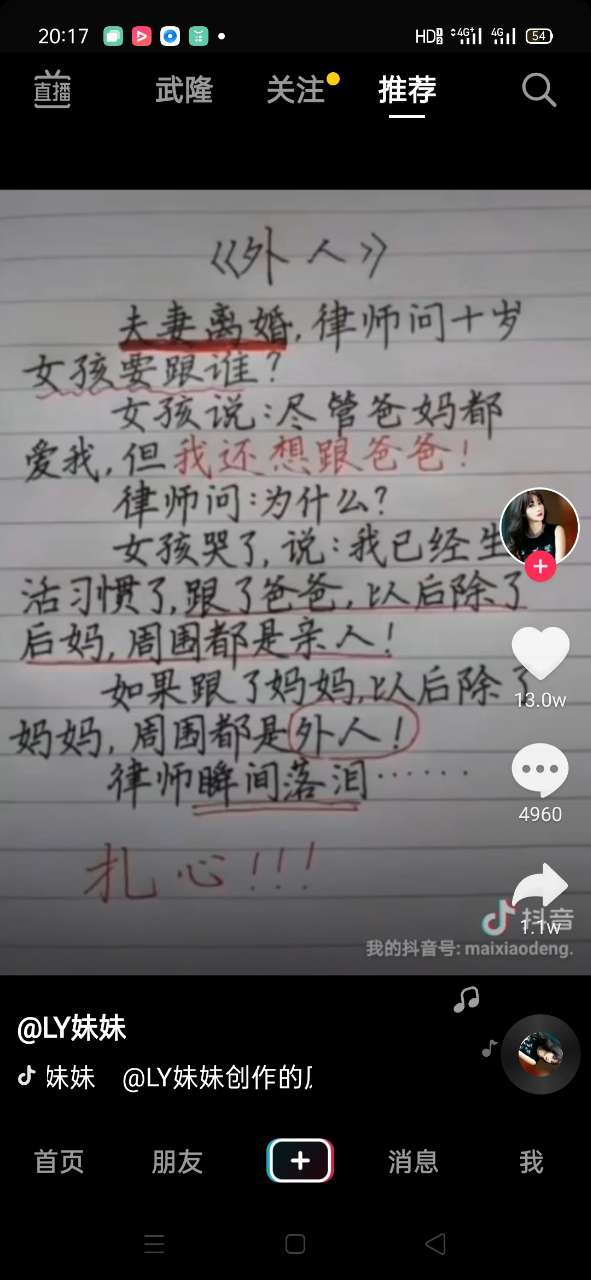 20:17
HD 4G+ 4G 54
直播 武隆 关注 推荐
《外人》
夫妻离婚,律师问十岁
女孩要跟谁?
女孩说:尽管爸妈都
爱我,但我还想跟爸爸!
律师问:为什么?
女孩哭了,说:我已经生
活习惯了,跟了爸爸,以后除了
后妈,周围都是亲人!
如果跟了妈妈,以后除了
妈妈,周围都是外人!
律师瞬间落泪……
扎心!!!
13.0w
4960
1.1w
抖音
我的抖音号: maixiaodeng.
@LY妹妹
妹妹 @LY妹妹创作的
首页 朋友 消息 我